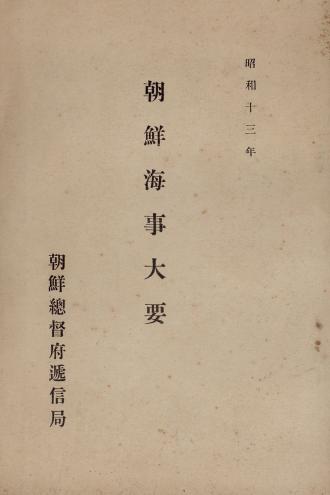 昭和十三年
朝鮮海事大要
朝鮮總督府遞信局